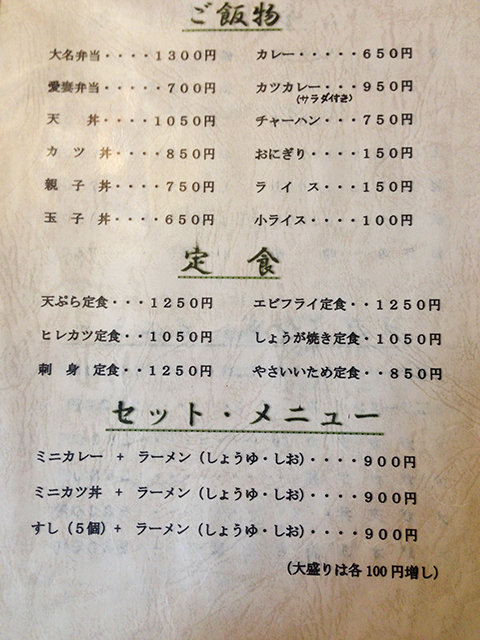 ご飯物
大名弁当・・・・１３００円　カレー・・・・・６５０円
愛妻弁当・・・・・７００円　カツカレー・・・９５０円
(サラダ付き)
天　　丼・・・・１０５０円　チャーハン・・・７５０円
カ　ツ　丼・・・・８５０円　おにぎり・・・・１５０円
親　子　丼・・・・７５０円　ラ　イ　ス・・・１５０円
玉　子　丼・・・・６５０円　小ライス・・・・１００円
定　食
天ぷら定食・・・１２５０円　エビフライ定食・・１２５０円
ヒレカツ定食・・１０５０円　しょうが焼き定食・１０５０円
刺　身　定食・・１２５０円　やさいいため定食・・８５０円
セット・メニュー
ミニカレー　+　ラーメン（しょうゆ・しお）・・・・９００円
ミニカツ丼　+　ラーメン（しょうゆ・しお）・・・・９００円
すし（５個）+　ラーメン（しょうゆ・しお）・・・・９００円
（大盛りは各100円増し）